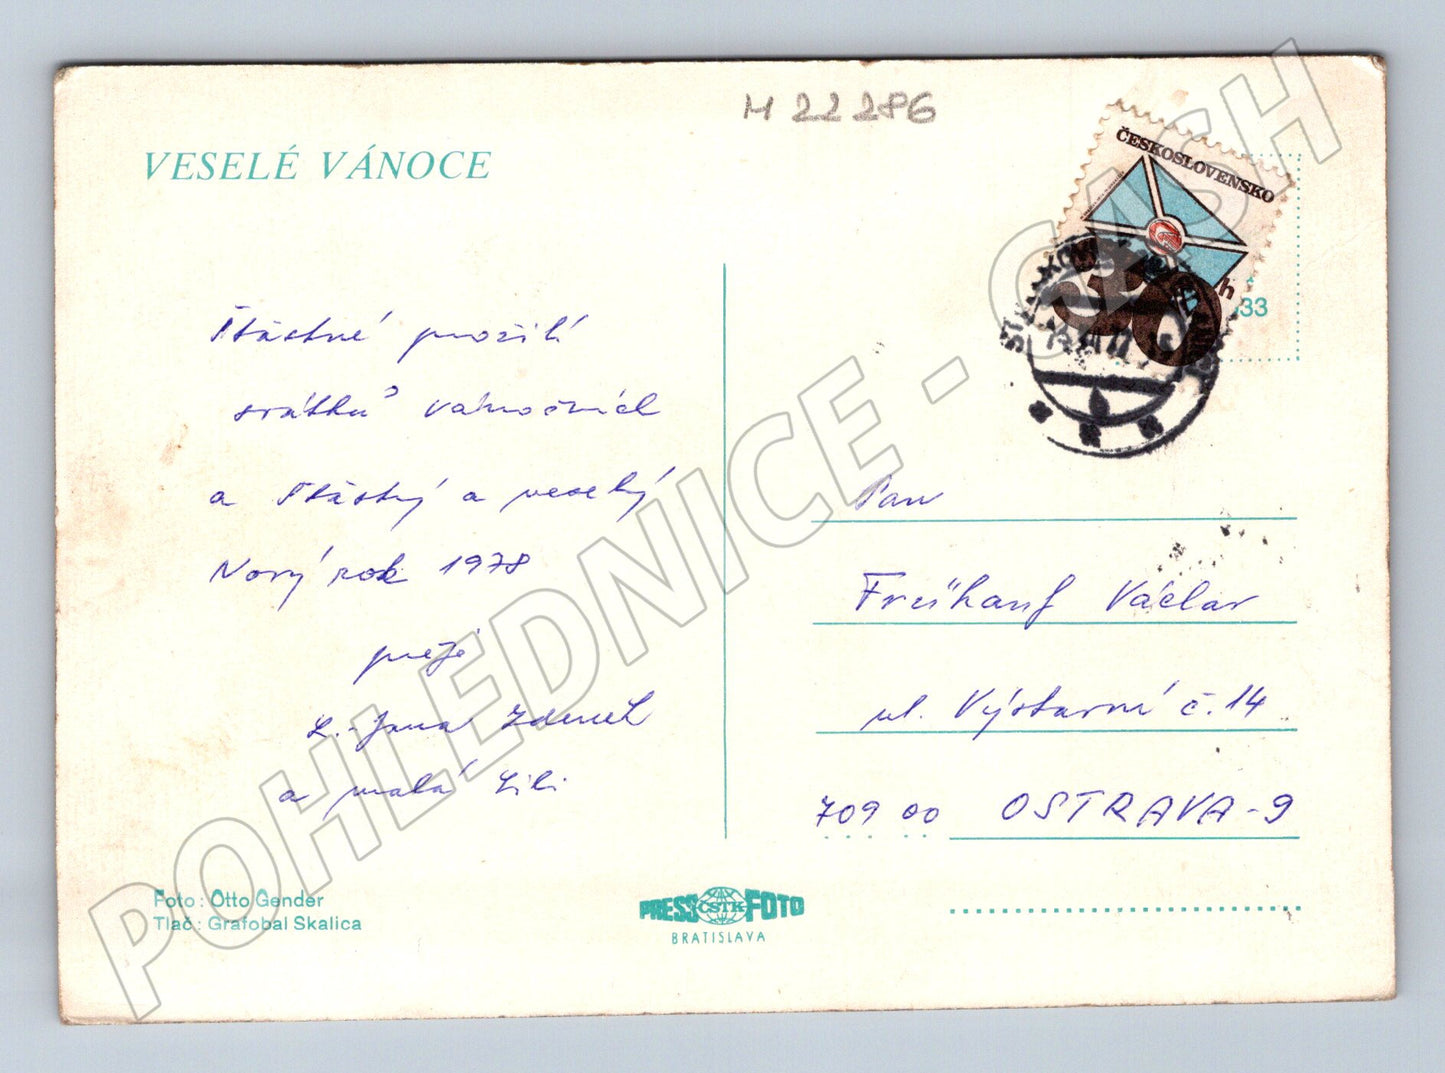 H 22286
VESELÉ VÁNOCE
ČESKOSLOVENSKO
30 h
33
Šťastné prožití
svátků vánočních
a šťastný a veselý
Nový rok 1978
přejí
L. Jana Zdeněk
a malá Lili
Pan
Frühauf Václav
ul. Výstavní č. 14
709 00 OSTRAVA-9
Foto: Otto Gender
Tlač: Grafobal Skalica
PRESS ČSTK FOTO
BRATISLAVA
POHLEDNICE - CASH